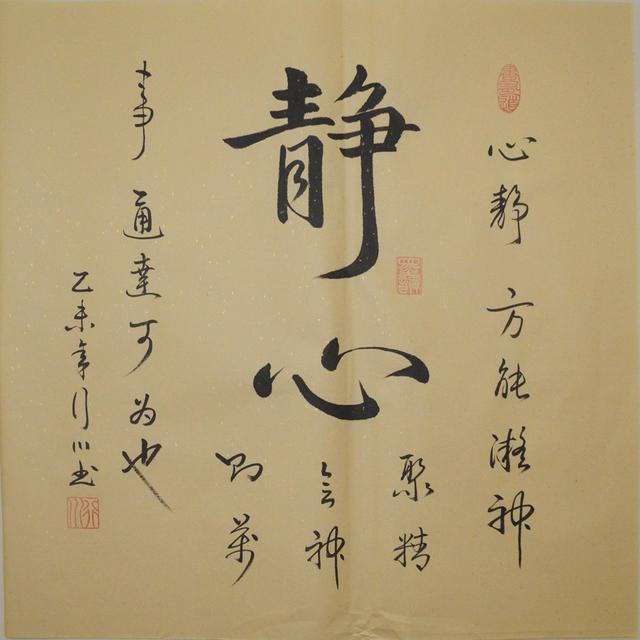 静心
心静方能凝神
聚精
会神
则万
事通达可为也
乙未年行川书